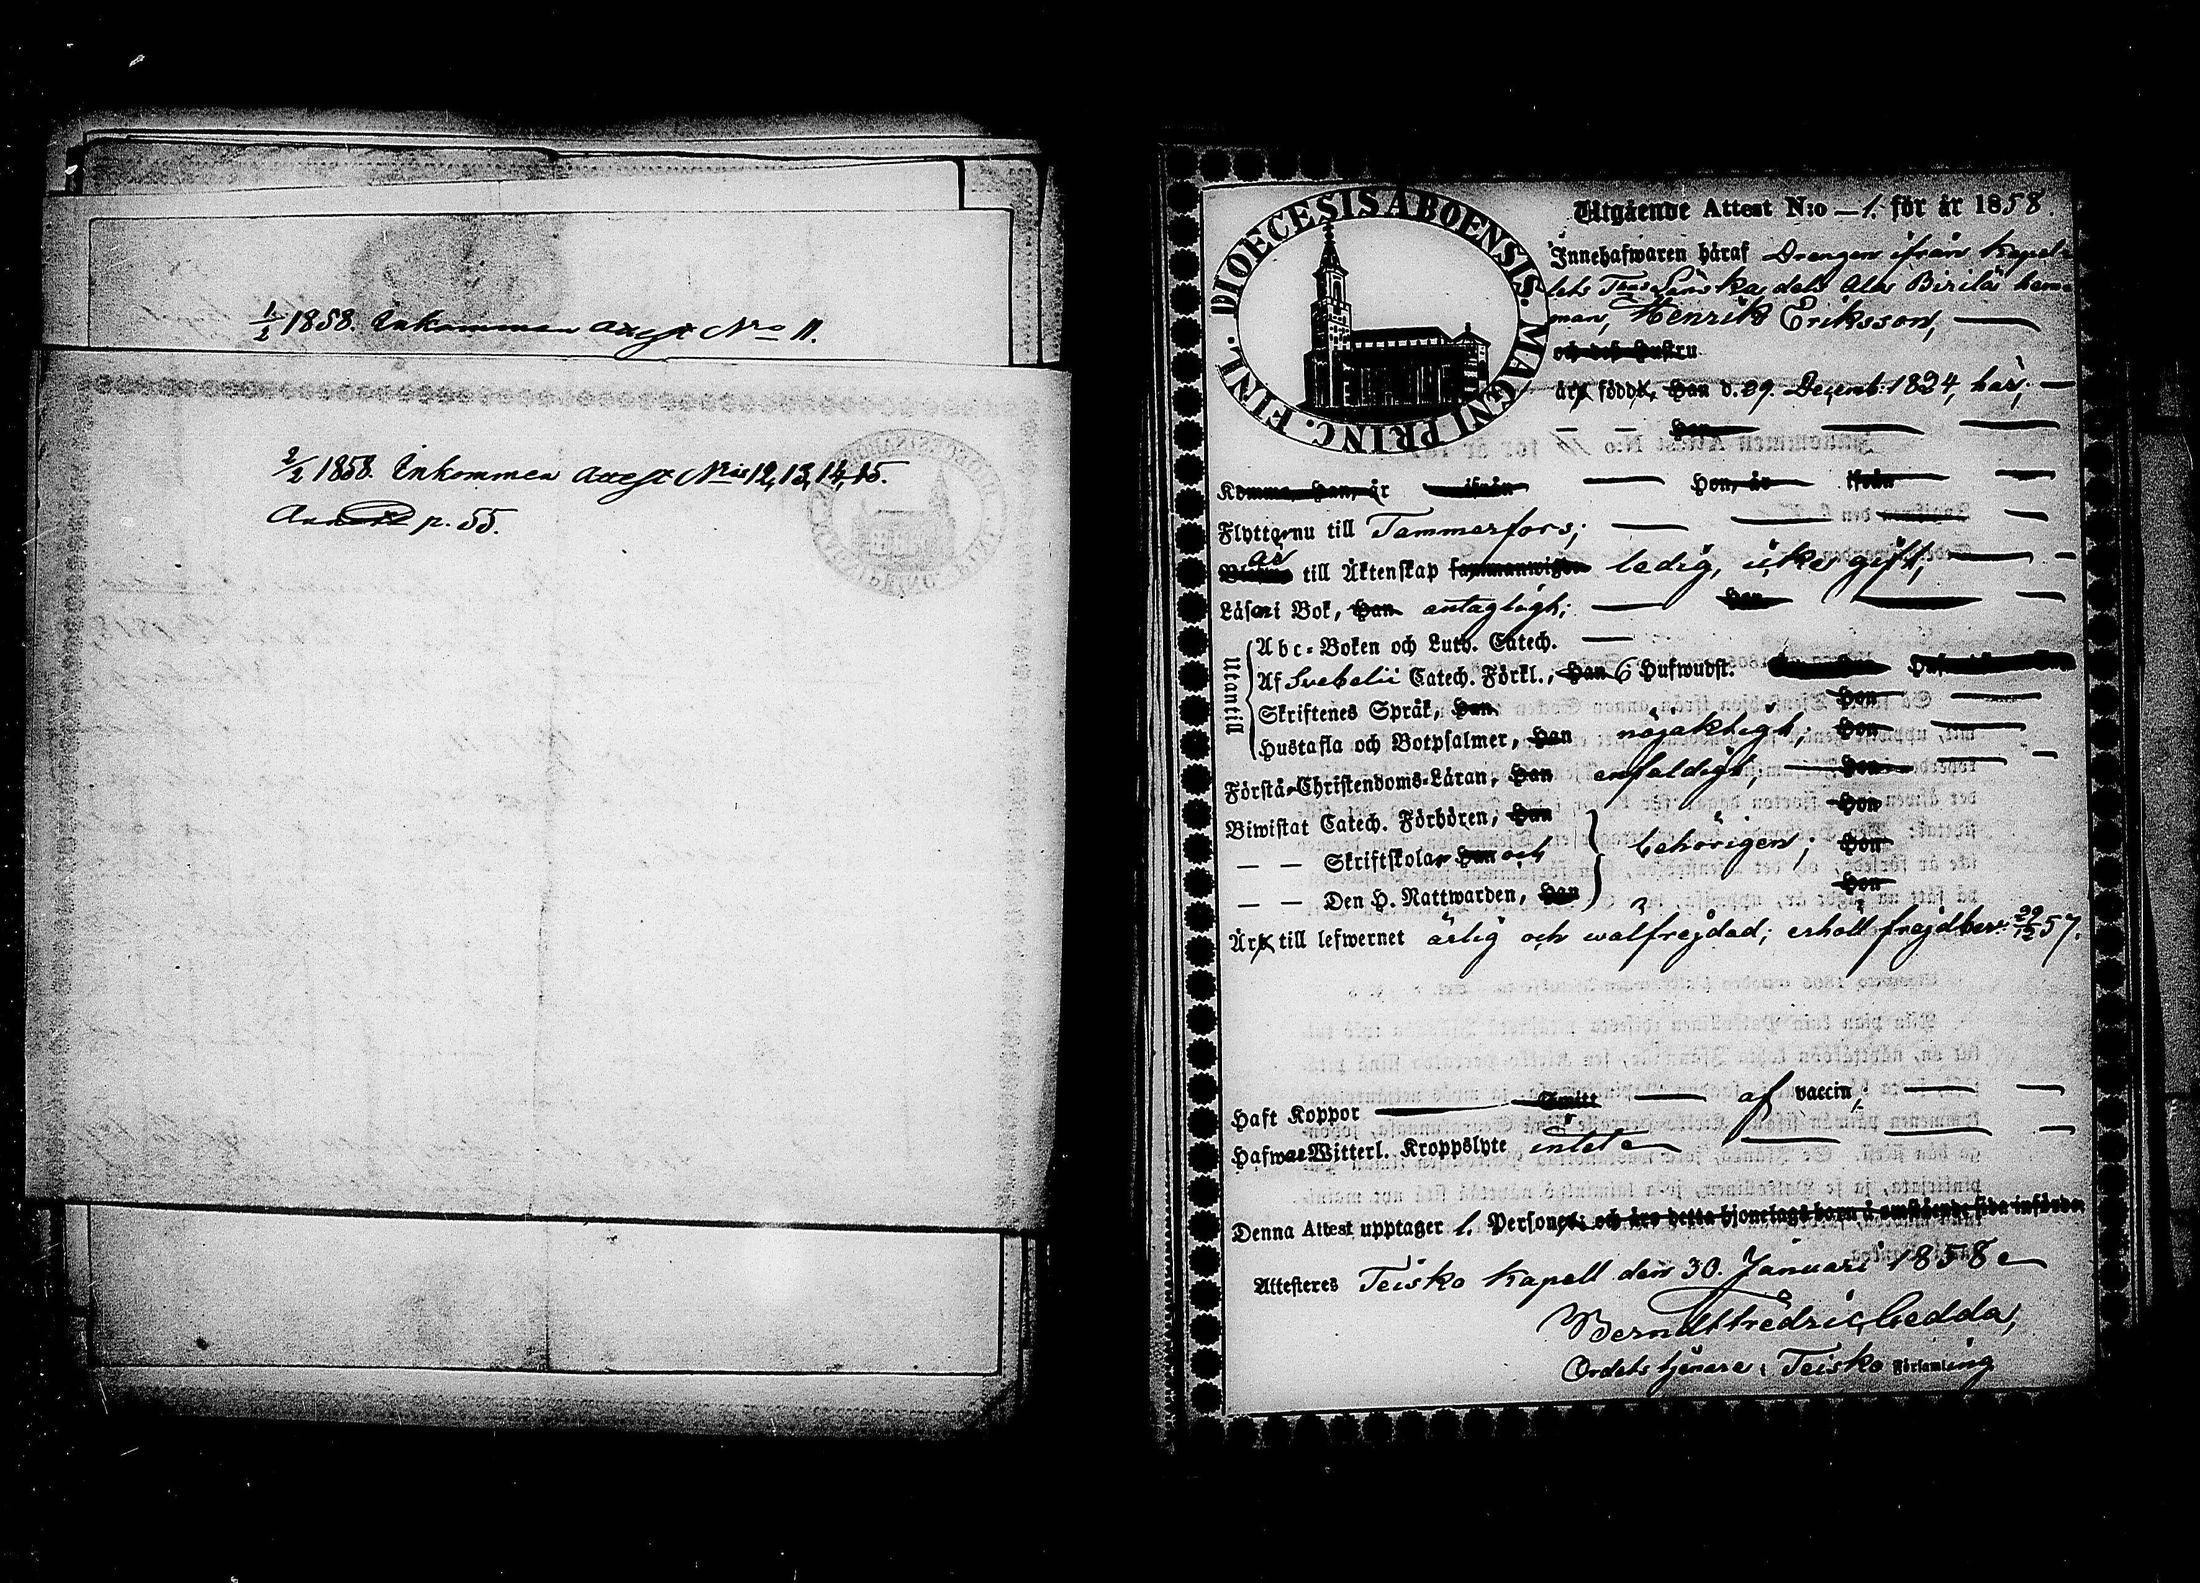 1/2 1858. Inkommen attest Nro 11.
2/2 1858. Inkommen Attest Nris 12, 13, 14, 15.
p. 55.
DIOECESIS ABOENSIS. MAGNI PRINC. FINL.
Utgående Attest N:o 1. för år 1858.
Innehafwaren häraf Drengen ifrån Kapel-
lets Ala Birilä hem-
man, Henrik Eriksson,
och dess hustru
är född, Han d. 29. Decemb. 1834, här;
Hon
Komma, Han, är ifrån Hon, är ifrån
Flytta nu till Tammerfors;
är till Äktenskap sammanwigde ledig, icke gift;
Läser i Bok, Han antagligt; Hon
Utantill
Abc-Boken och Luth. Catech.
Af Svebelii Catech. Förkl., Han 6 Hufwudst.
Skriftenes Språk, Han Hon
Hustafla och Botpsalmer, Han nöjaktigt; Hon
Förstå Christendoms-Läran, Han enfaldigt; Hon
Biwistat Catech. Förhören, Han Hon
— — Skriftskolar Han och behörigen; Hon
— — Den H. Nattwarden, Han Hon
Är till lefwernet ärlig och wälfrejdad; erhöll frejdbev. 29/12 57.
Haft Koppor af vaccin,
Hafwa Witterl. Kroppslyte intet
Denna Attest upptager 1. Person; och äro detta hjonelags barn å omstående sida införde.
Attesteres Teisko Kapell den 30. Januari 1858
Berndt Fredric Cedda,
Ordets tjenare i Teisko Församling